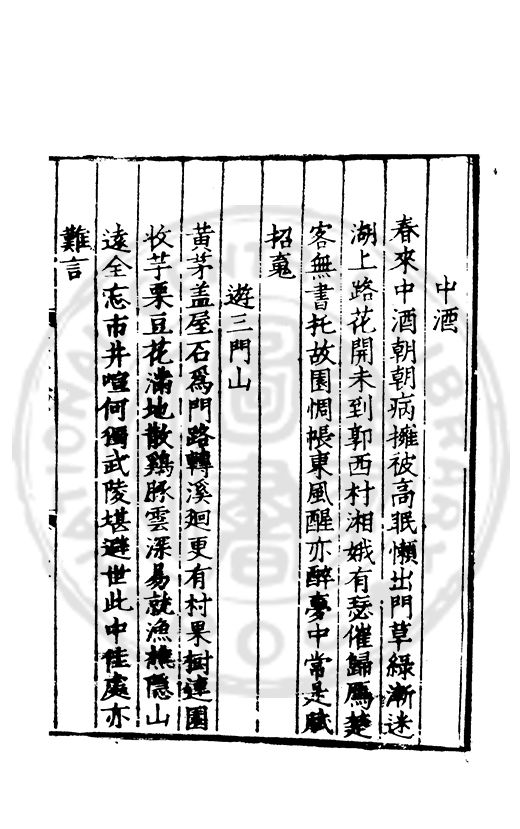 中酒
春來中酒朝朝病擁被高眠懶出門草綠漸迷
湖上路花開未到郭西村湘娥有瑟催歸鴈楚
客無書托故園惆悵東風醒亦醉夢中常是賦
招䰟
遊三門山
黃茅盖屋石爲門路轉溪廻更有村果樹連園
收芋栗豆花滿地散鷄豚雲深易就漁樵隱山
遠全忘市井喧何獨武陵堪避世此中佳處亦
難言